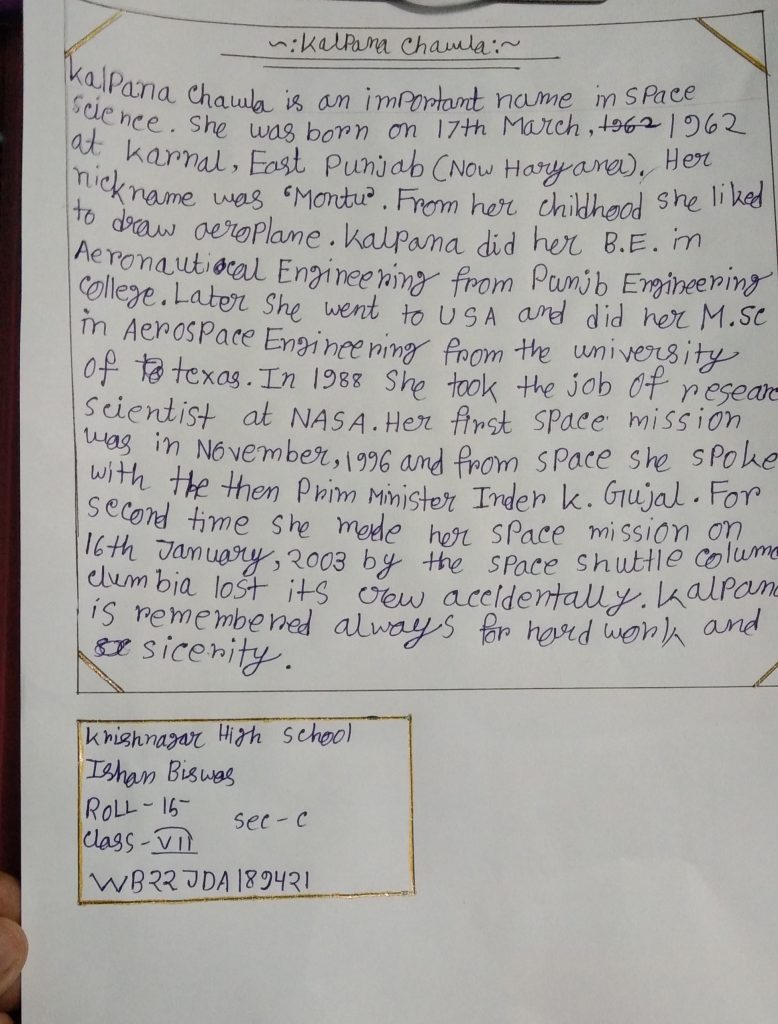 ~:Kalpana Chawla:~
Kalpana Chawla is an important name in space
science. She was born on 17th March, 1962 1962
at Karnal, East Punjab (Now Haryana). Her
nickname was "Montu". From her childhood she liked
to draw aeroplane. Kalpana did her B.E. in
Aeronautiocal Engineering from Panjb Engineering
College. Later She went to USA and did her M.Sc
in Aerospace Engineering from the university
of To texas. In 1988 She took the job of researc
scientist at NASA. Her first space mission
was in November, 1996 and from space she spoke
with the then Prim Minister Inder K. Gujal. For
second time she made her space mission on
16th January, 2003 by the space shuttle colum
clumbia lost its crew accidentally. Kalpana
is remembered always for hard work and
sicerity.
Krishnagar High School
Ishan Biswas
ROLL - 15
Sec - C
Class - VII
WB22JDA189421